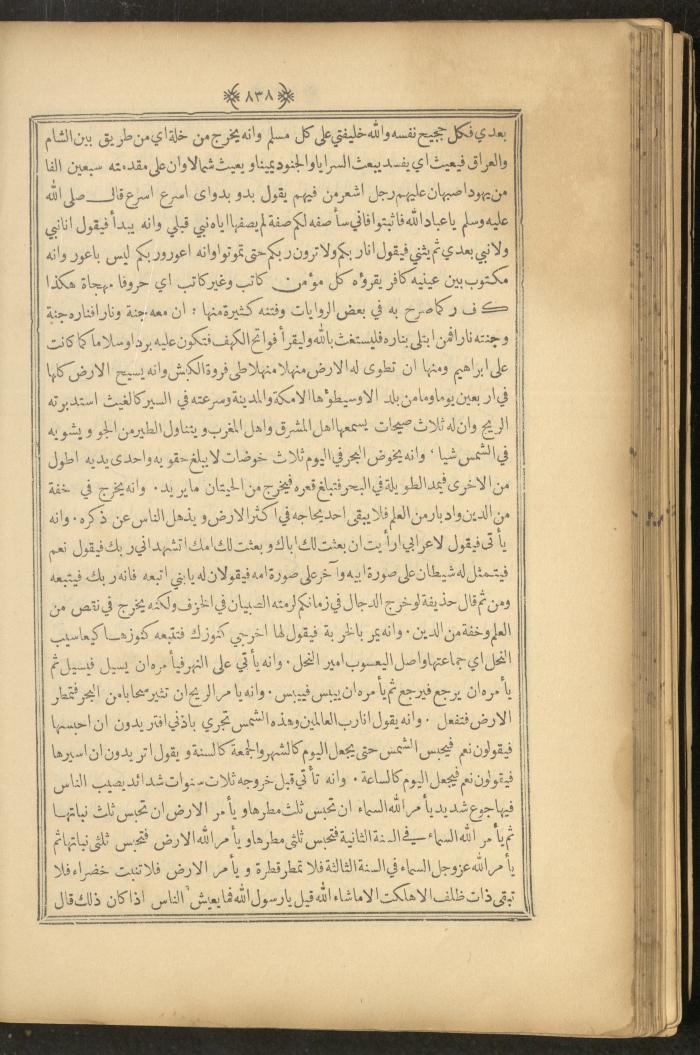 ٨٣٨
بعدي فكل حجيج نفسه والله خليفتي على كل مسلم وانه يخرج من خلة اي من طريق بين الشام
والعراق فيعيث اي يفسد يبعث السرايا والجنود يمينا ويعيث شمالا وان على مقدمته سبعين الفا
من يهود اصبهان عليهم رجل اشعر من فيهم يقول بدو بدو اي اسرع اسرع قال صلى الله
عليه وسلم يا عباد الله فاثبتوا فاني سأصفه لكم صفة لم يصفها اياه نبي قبلي وانه يبدأ فيقول انا نبي
ولا نبي بعدي ثم يثني فيقول انا ربكم ولا ترون ربكم حتى تموتوا وانه اعور وربكم ليس باعور وانه
مكتوب بين عينيه كافر يقرؤه كل مؤمن كاتب وغير كاتب اي حروفا مهجاة هكذا
ك ف ر كما صرح به في بعض الروايات وفتنه كثيرة منها : ان معه جنة ونارا فناره جنة
وجنته نار فمن ابتلى بناره فليستغث بالله وليقرأ فواتح الكهف فتكون عليه بردا وسلاما كما كانت
على ابراهيم ومنها ان تطوى له الارض منهلا منهلا طي فروة الكبش وانه يسيح الارض كلها
في اربعين يوما وما من بلد الا وسيطؤها الا مكة والمدينة وسرعته في السير كالغيث استدبرته
الريح وان له ثلاث صيحات يسمعها اهل المشرق واهل المغرب ويتناول الطير من الجو ويشويه
في الشمس شيا ، وانه يخوض البحر في اليوم ثلاث خوضات لا يبلغ حقويه واحدى يديه اطول
من الاخرى فيمد الطويلة في البحر فتبلغ قعره فيخرج من الحيتان ما يريد . وانه يخرج في خفة
من الدين وادبار من العلم فلا يبقى احد يحاجه في اكثر الارض ويذهل الناس عن ذكره . وانه
يأتي فيقول لاعرابي ارأيت ان بعثت لك اباك وبعثت لك امك اتشهد اني ربك فيقول نعم
فيتمثل له شيطان على صورة ابيه وآخر على صورة امه فيقولان له يا بني اتبعه فانه ربك فيتبعه
ومن ثم قال حذيفة لو خرج الدجال في زمانكم لرمته الصبيان في الخزف ولكنه يخرج في نقص من
العلم وخفة من الدين . وانه يمر بالخربة فيقول لها اخرجي كنوزك فتتبعه كنوزها كيعاسيب
النحل اي جماعتها واصل اليعسوب امير النحل . وانه يأتي على النهر فيأمره ان يسيل فيسيل ثم
يأمره ان يرجع فيرجع ثم يأمره ان ييبس فييبس . وانه يامر الريح ان تثير سحابا من البحر فتمطر
الارض فتفعل . وانه يقول انا رب العالمين وهذه الشمس تجري باذني افتريدون ان احبسها
فيقولون نعم فيحبس الشمس حتى يجعل اليوم كالشهر والجمعة كالسنة ويقول اتريدون ان اسيرها
فيقولون نعم فيجعل اليوم كالساعة . وانه تأتي قبل خروجه ثلاث سنوات شدائد يصيب الناس
فيها جوع شديد يأمر الله السماء ان تحبس ثلث مطرها ويأمر الارض ان تحبس ثلث نباتها
ثم يأمر الله السماء في السنة الثانية فتحبس ثلثي مطرها ويأمر الله الارض فتحبس ثلثي نباتها ثم
يأمر الله عز وجل السماء في السنة الثالثة فلا تمطر قطرة ويأمر الارض فلا تنبت خضراء فلا
تبقى ذات ظلف الا هلكت الا ما شاء الله قيل يا رسول الله فما يعيش الناس اذا كان ذلك قال